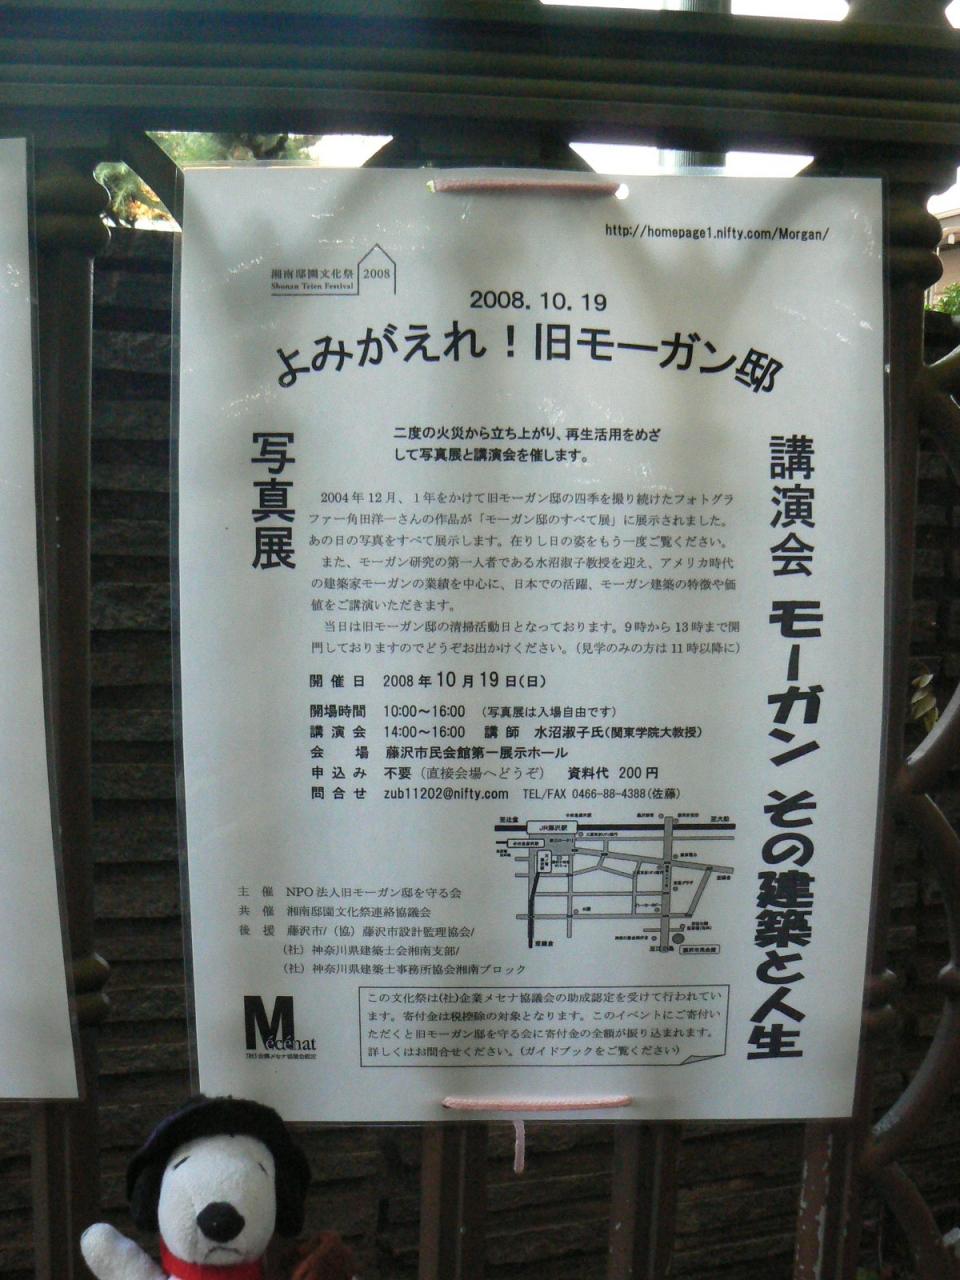 http://homepage1.nifty.com/Morgan/
湘南邸園文化祭 2008
Shonan Teien Festival
2008.10.19
よみがえれ！旧モーガン邸
写真展
講演会 モーガン その建築と人生
二度の火災から立ち上がり、再生活用をめざ
して写真展と講演会を催します。
2004年12月、1年をかけて旧モーガン邸の四季を撮り続けたフォトグラ
ファー角田洋一さんの作品が「モーガン邸のすべて展」に展示されました。
あの日の写真をすべて展示します。在りし日の姿をもう一度ご覧ください。
また、モーガン研究の第一人者である水沼淑子教授を迎え、アメリカ時代
の建築家モーガンの業績を中心に、日本での活躍、モーガン建築の特徴や価
値をご講演いただきます。
当日は旧モーガン邸の清掃活動日となっております。9時から13時まで開
門しておりますのでどうぞお出かけください。（見学のみの方は11時以降に）
開催日 2008年10月19日（日）
開場時間 10:00～16:00 （写真展は入場自由です）
講演会 14:00～16:00 講師 水沼淑子氏（関東学院大教授）
会場 藤沢市民会館第一展示ホール
申込み 不要（直接会場へどうぞ） 資料代 200円
問合せ zub11202@nifty.com TEL/FAX 0466-88-4388（佐藤）
至辻堂
JR藤沢駅
至大船
至鎌倉
藤沢市民会館
主催 NPO法人旧モーガン邸を守る会
共催 湘南邸園文化祭連絡協議会
後援 藤沢市/（協）藤沢市設計監理協会/
（社）神奈川県建築士会湘南支部/
（社）神奈川県建築士事務所協会湘南ブロック
Mécénat
この文化祭は（社）企業メセナ協議会の助成認定を受けて行われてい
ます。寄付金は税控除の対象となります。このイベントにご寄付い
ただくと旧モーガン邸を守る会に寄付金の全額が振り込まれます。
詳しくはお問合せください。（ガイドブックをご覧ください）